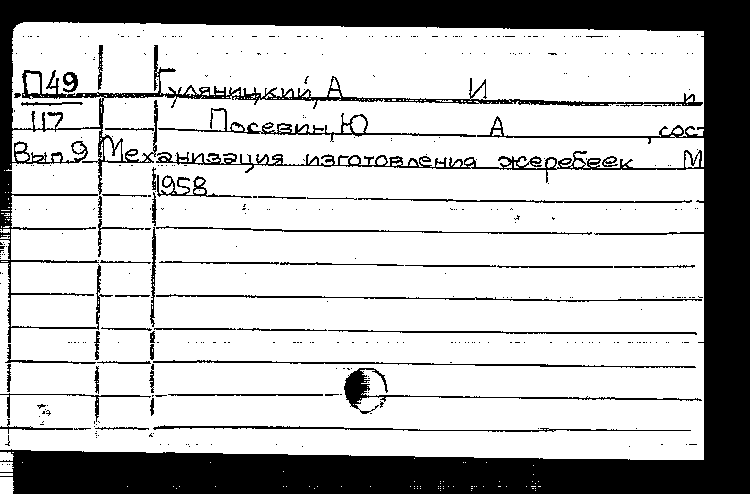 П49 Гуляницкий, А И и
117 Посевин, Ю А , сост
Вып.9 Механизация изготовления жеребеек М
1958.